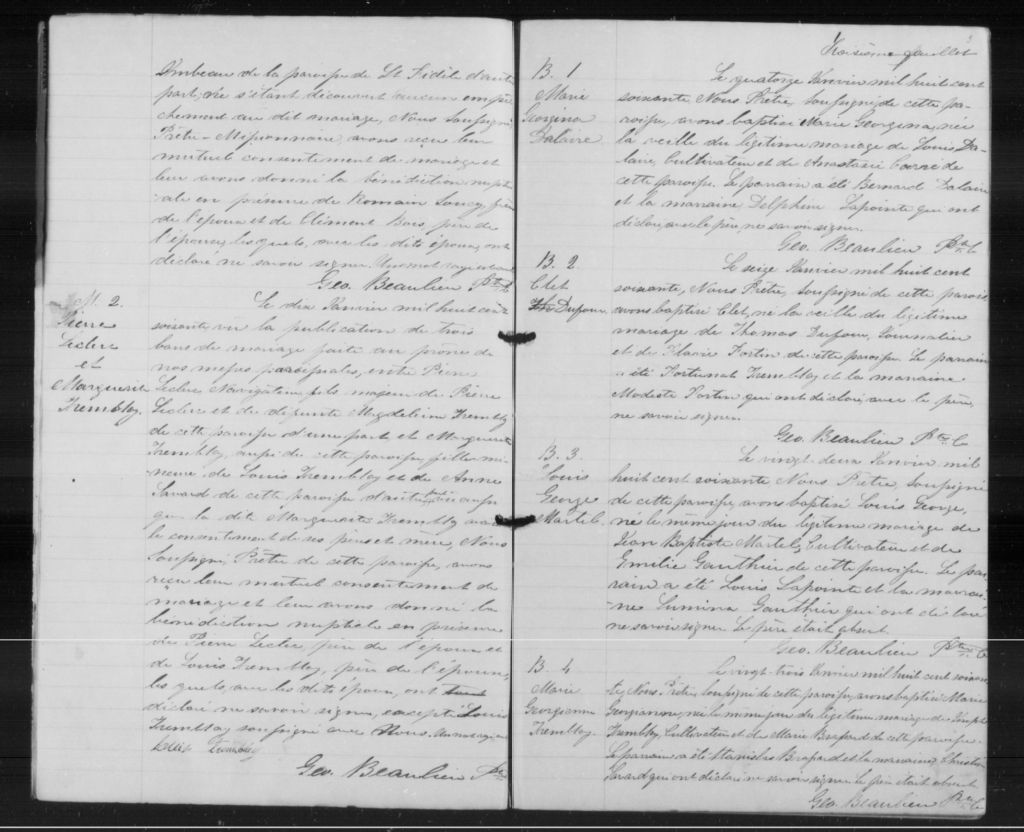 Imbeau de la paroisse de St Fidèle d'autre
part; ne s'étant découvert aucun empê
chement au dit mariage, Nous soussigné
Prêtre-Missionnaire, avons reçu leur
mutuel consentement de mariage et
leur avons donné la bénédiction nupti
ale en présence de Romain
de l'époux et de Clément Bois, père de
l'épouse, lesquels, avec les dits époux, ont
déclaré ne savoir signer. Un mot rayé est nul
Geo. Beaulieu Ptre
M. 2.
Pierre
Leclerc
et
Marguerite
Tremblay.
Le dix Janvier mil huit cent
soixante vu la publication de trois
bans de mariage faite au prône de
nos messes paroissiales, entre Pierre
Leclerc, Navigateur, fils majeur de Pierre
Leclerc et de défunte Magdeleine Trembl
de cette paroisse d'une part et Marguerite
Tremblay, aussi de cette paroisse, fille mi-
neure de Louis Tremblay et de Anne
Savard de cette paroisse d'autre
que la dite Marguerite Tremblay
le consentement de ses père et mère, Nous
Soussigné, Prêtre de cette paroisse, avons
reçu leur mutuel consentement de
mariage et leur avons donné la
bénédiction nuptiale en présence
de Pierre Leclerc, père de l'époux et
de Louis Tremblay, père de l'épouse,
lesquels, avec les dits époux, ont
déclaré ne savoir signer, excepté Louis
Tremblay soussigné avec Nous. Un mot rayé
Louis Trembley
Geo. Beaulieu Ptre
Troisième feuillet
B. 1
Marie
Georgina
Dalaire
Le quatorze Janvier mil huit cent
soixante, Nous Prêtre, soussigné de cette pa-
roisse, avons baptisé Marie Georgina, née
la veille du légitime mariage de Louis Da-
laire, Cultivateur et de Anastasie de
cette paroisse. Le parrain a été Bernard Dalaire
et la marraine Delphine Lapointe qui ont
déclaré avec le père ne savoir signer.
Geo. Beaulieu Ptre C
B. 2.
Clet
Dufour
Le seize Janvier mil huit cent
soixante, Nous Prêtre, soussigné de cette parois
avons baptisé Clet, né la veille du légitime
mariage de Thomas Dufour, Journalier
et de Flavie Fortin de cette paroisse. Le parrain
a été Fortunat Tremblay et la marraine
Modeste Fortin qui ont déclaré avec le père,
ne savoir signer.
Geo. Beaulieu Ptre C
B. 3
Louis
George
Martel.
Le vingt deux Janvier mil
huit cent soixante Nous Prêtre, soussigné
de cette paroisse, avons baptisé Louis George,
né le même jour du légitime mariage de
Jean Baptiste Martel, Cultivateur et de
Emilie Gauthier de cette paroisse. Le par
rain a été Louis Lapointe et la marrai-
ne Lumina Gauthier qui ont déclaré
ne savoir signer. Le père était absent.
Geo. Beaulieu Ptre C
B. 4
Marie
Georgianne
Tremblay.
Le vingt trois Janvier mil huit cent soixan
te, Nous Prêtre, soussigné de cette paroisse, avons baptisé Marie
Georgianne, née le même jour du légitime mariage de Joseph
Tremblay, Cultivateur et de Marie Brassard de cette paroisse.
Le parrain a été Stanislas Brassard et la marraine Christine
Savard qui ont déclaré ne savoir signer. Le père était absent
Geo. Beaulieu Ptre C